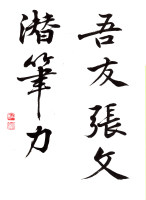 吾友張文
潜筆力